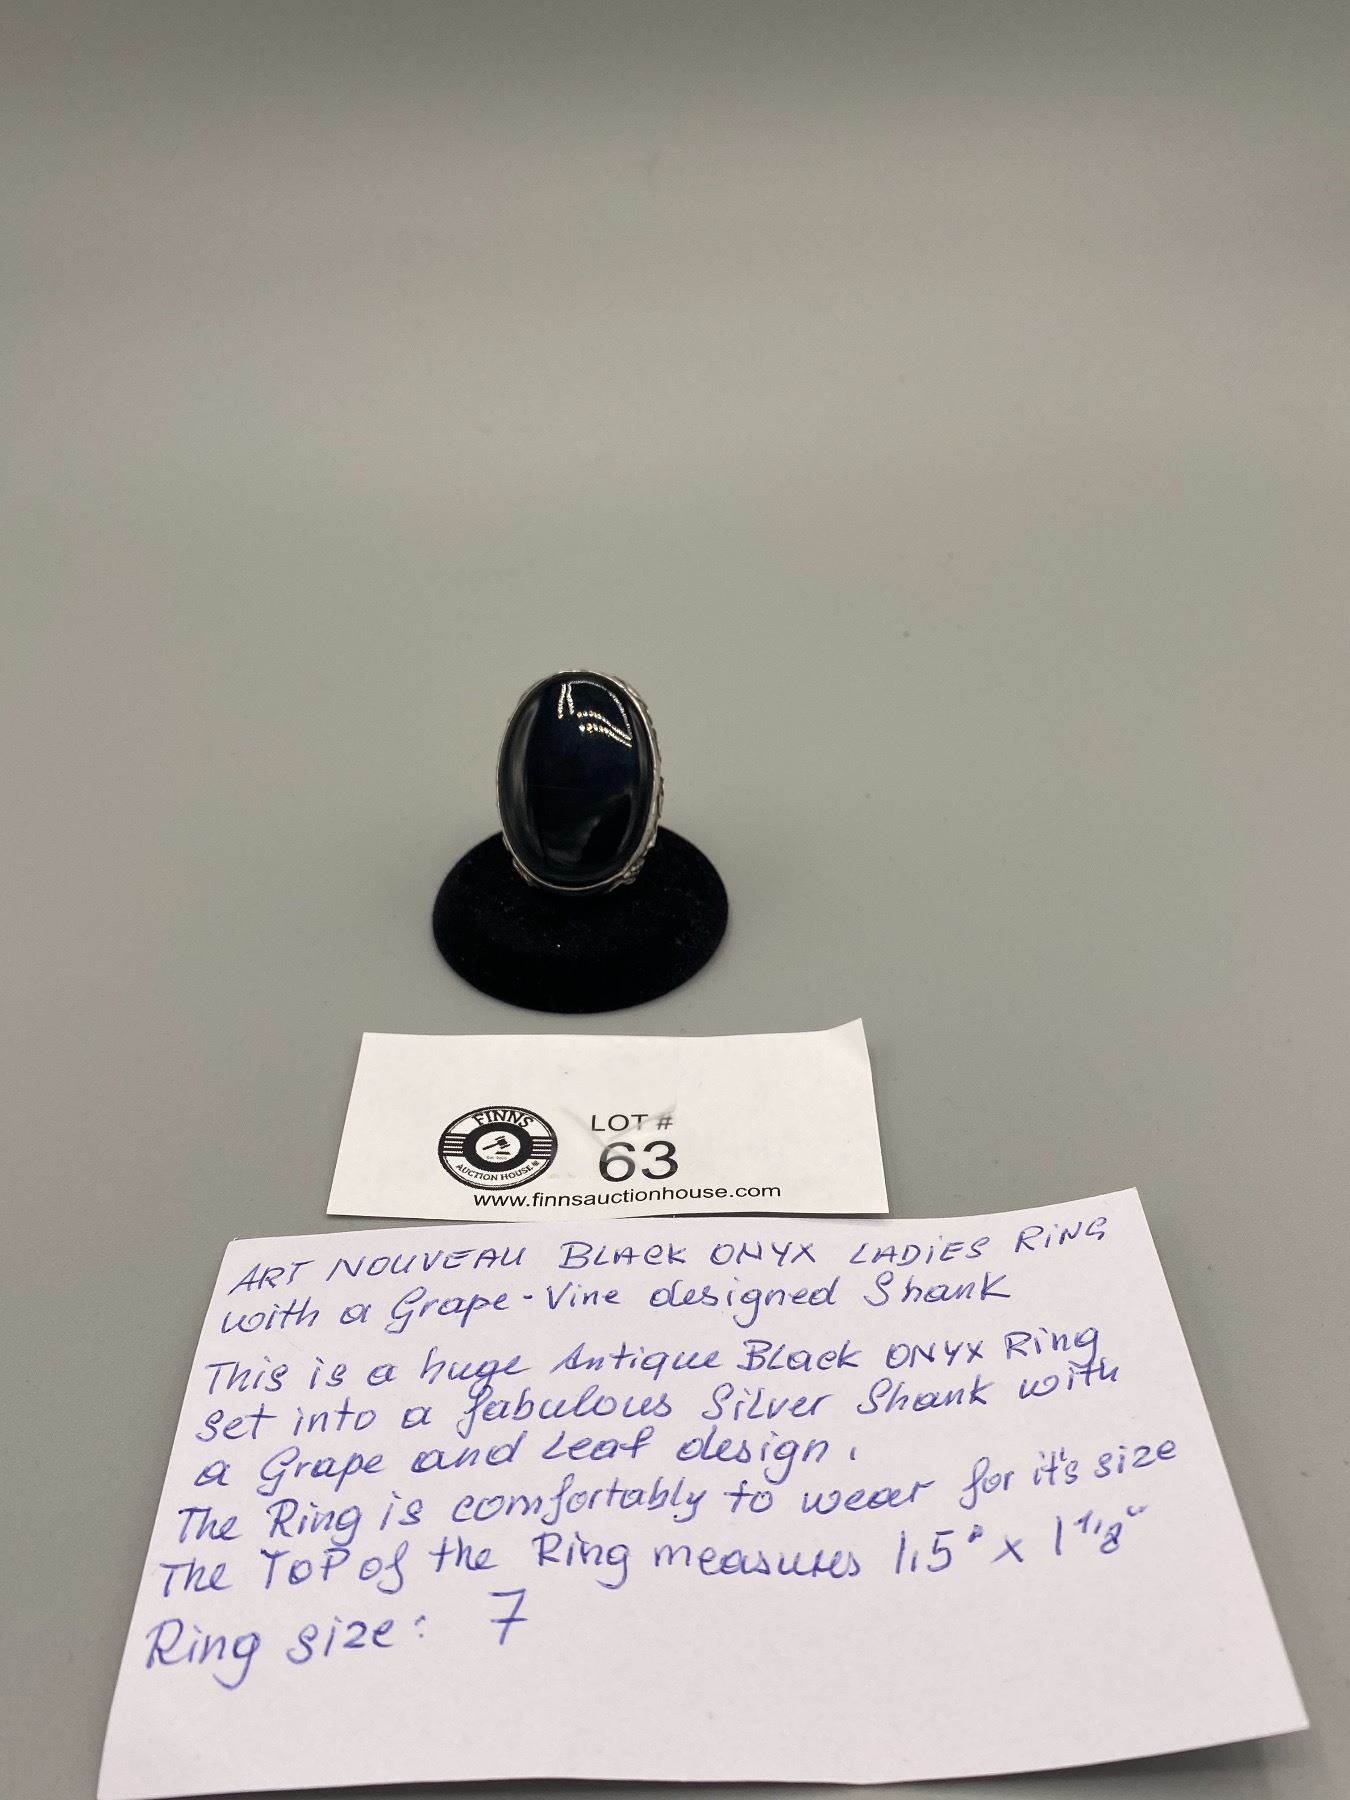 FINNS
AUCTION HOUSE
LOT #
63
www.finnsauctionhouse.com
ART NOUVEAU BLACK ONYX LADIES RING
with a Grape-Vine designed Shank
This is a huge Antique Black ONYX Ring
set into a fabulous Silver Shank with
a Grape and Leaf design.
The Ring is comfortably to wear for it's size
The TOP of the Ring measures 1.5" x 1 1/8"
Ring size: 7